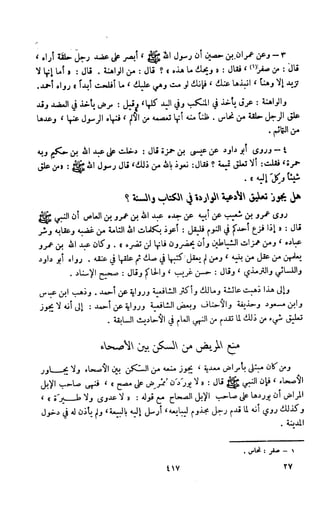 ٣ - وعن عمران بن حصين أن رسول الله ﷺ « أبصر على عضد رجل حلقة أراه »
قال : من صفر(١) ، فقال : « ويحك ما هذه » ؟ قال : من الواهنة . قال : « أما إنها لا
تزيد إلا وهناً ، انبذها عنك ، فإنك لو مت وهي عليك ، ما أفلحت أبداً » رواه أحمد .
والواهنة : عرق يأخذ في المنكب وفي اليد كلها ، وقيل : مرض يأخذ في العضد وقد
علق الرجل حلقة من نحاس . ظناً منه أنها تعصمه من الألم ، فنهاه الرسول عنها ، وعدها
من التمائم .
٤ - وروى أبو داود عن عيسى بن حمزة قال : دخلت على عبد الله بن حكيم وبه
حمرة ، فقلت : ألا تعلق تميمة ؟ فقال : نعوذ بالله من ذلك ، قال رسول الله ﷺ : « من علق
شيئاً وكل إليه » .
هل يجوز تعليق الأدعية الواردة في الكتاب والسنة ؟
روى عمرو بن شعيب عن أبيه عن جده عبد الله بن عمرو بن العاص أن النبي ﷺ
قال : « إذا فزع أحدكم في النوم فليقل : أعوذ بكلمات الله التامة من غضبه وعقابه وشر
عباده ، ومن همزات الشياطين وأن يحضرون فإنها لن تضره » . وكان عبد الله بن عمرو
يعلمهن من عقل من بنيه ، ومن لم يعقل كتبها في صك ثم علقها في عنقه . رواه أبو داود
والنسائي والترمذي ، وقال : حسن غريب ، والحاكم وقال : صحيح الإسناد .
وإلى هذا ذهبت عائشة ومالك وأكثر الشافعية ورواية عن أحمد . وذهب ابن عباس
وابن مسعود وحذيفة والأحناف وبعض الشافعية ورواية عن أحمد : إلى أنه لا يجوز
تعليق شيء من ذلك لما تقدم من النهي العام في الأحاديث السابقة .
منع المريض من السكن بين الأصحاء
ومن كان مبتلى بأمراض معدية ، يجوز منعه من السكن بين الأصحاء ولا يجاور
الأصحاء ، فإن النبي ﷺ قال : « لا يوردن ممرض على مصح » ، فنهى صاحب الإبل
المراض أن يوردها على صاحب الإبل الصحاح مع قوله : « لا عدوى ولا طيرة » ،
وكذلك روي أنه لما قدم رجل مجذوم ليبايعه ، أرسل إليه بالبيعة ، ولم يأذن له في دخول
المدينة .
١ - صفر : نحاس .
٤١٧
٢٧